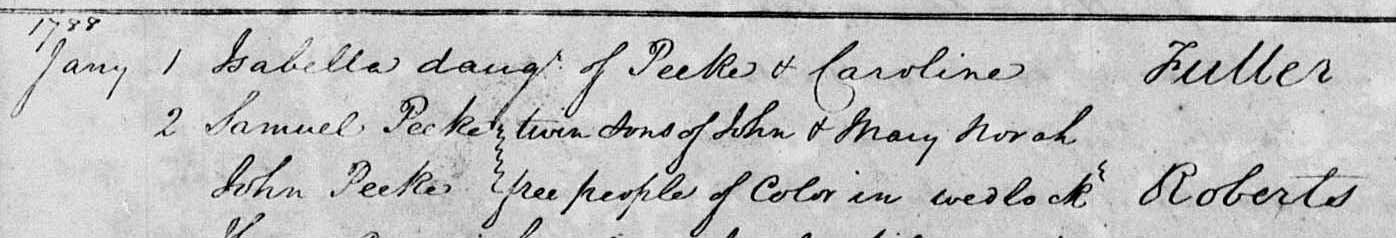 1788
Jany 1 Isabella daugr. of Peeke & Caroline Fuller
2 Samuel Peeke } twin sons of John & Mary Norah
John Peeke } free people of Color in wedlock } Roberts